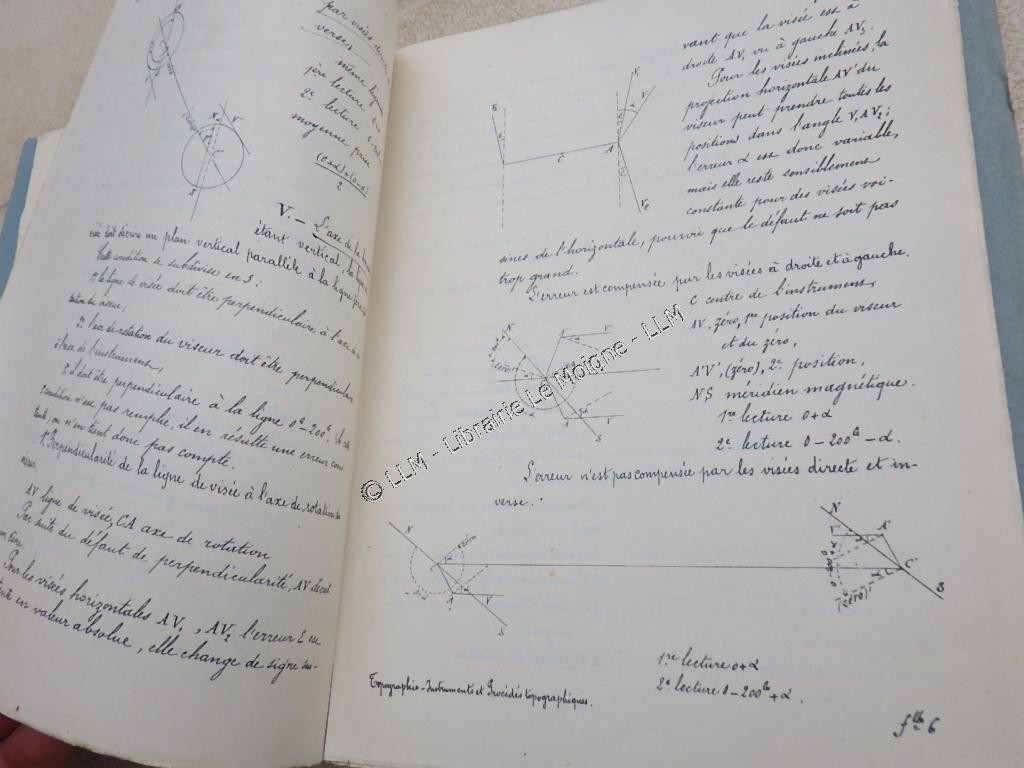 par visées
verses
même ligne
1ère lecture
2e lecture
moyenne prise
(0+α)+(0-α)
2
V. — L'axe de
étant vertical, la ligne
visée doit décrire un plan vertical parallèle à la ligne
Cette condition se subdivise en 3 :
1° la ligne de visée doit être perpendiculaire à l'axe de
tation du viseur ;
2° l'axe de rotation du viseur doit être perpendiculaire
à l'axe de l'instrument,
3° il doit être perpendiculaire à la ligne 0G-200G,
condition n'est pas remplie, il en résulte une erreur cons
tante, on n'en tient donc pas compte.
1° Perpendicularité de la ligne de visée à l'axe de rotation du
viseur.
AV ligne de visée, CA axe de rotation
Par suite du défaut de perpendicularité, AV décrit
un cône.
Pour les visées horizontales AV1, AV2 l'erreur E est
en valeur absolue, elle change de signe sui-
vant que la visée est à
droite AV, ou à gauche AV2.
Pour les visées inclinées, la
projection horizontale AV' du
viseur peut prendre toutes les
positions dans l'angle V1AV2 ;
l'erreur α est donc variable,
mais elle reste sensiblement
constante pour des visées voi-
sines de l'horizontale, pourvu que le défaut ne soit pas
trop grand.
L'erreur est compensée par les visées à droite et à gauche.
C centre de l'instrument,
AV, zéro, 1re position du viseur
et du zéro,
A'V', (zéro), 2e position,
NS méridien magnétique.
1re lecture 0+α
2e lecture 0-200G-α.
L'erreur n'est pas compensée par les visées directe et in-
verse.
1re lecture 0+α
2e lecture 0-200G+α.
Topographie - Instruments et Procédés topographiques.
flle 6
© LLM - Librairie Le Moigne - LLM